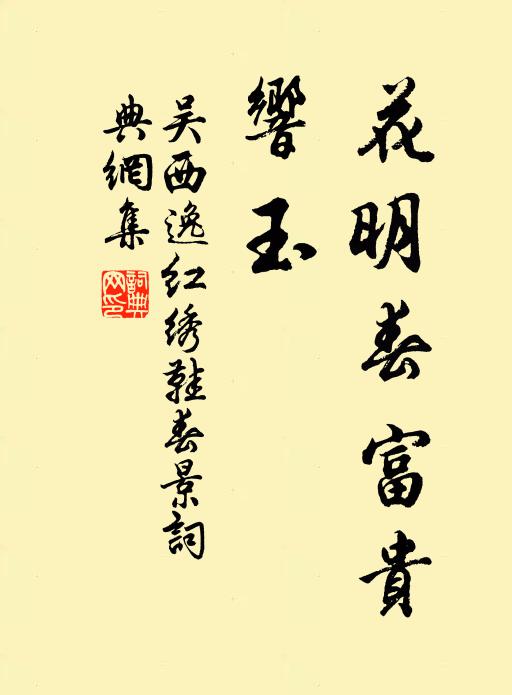 花明春富貴
響玉
吴西逸红绣鞋春景詞
典網集
詞典网印